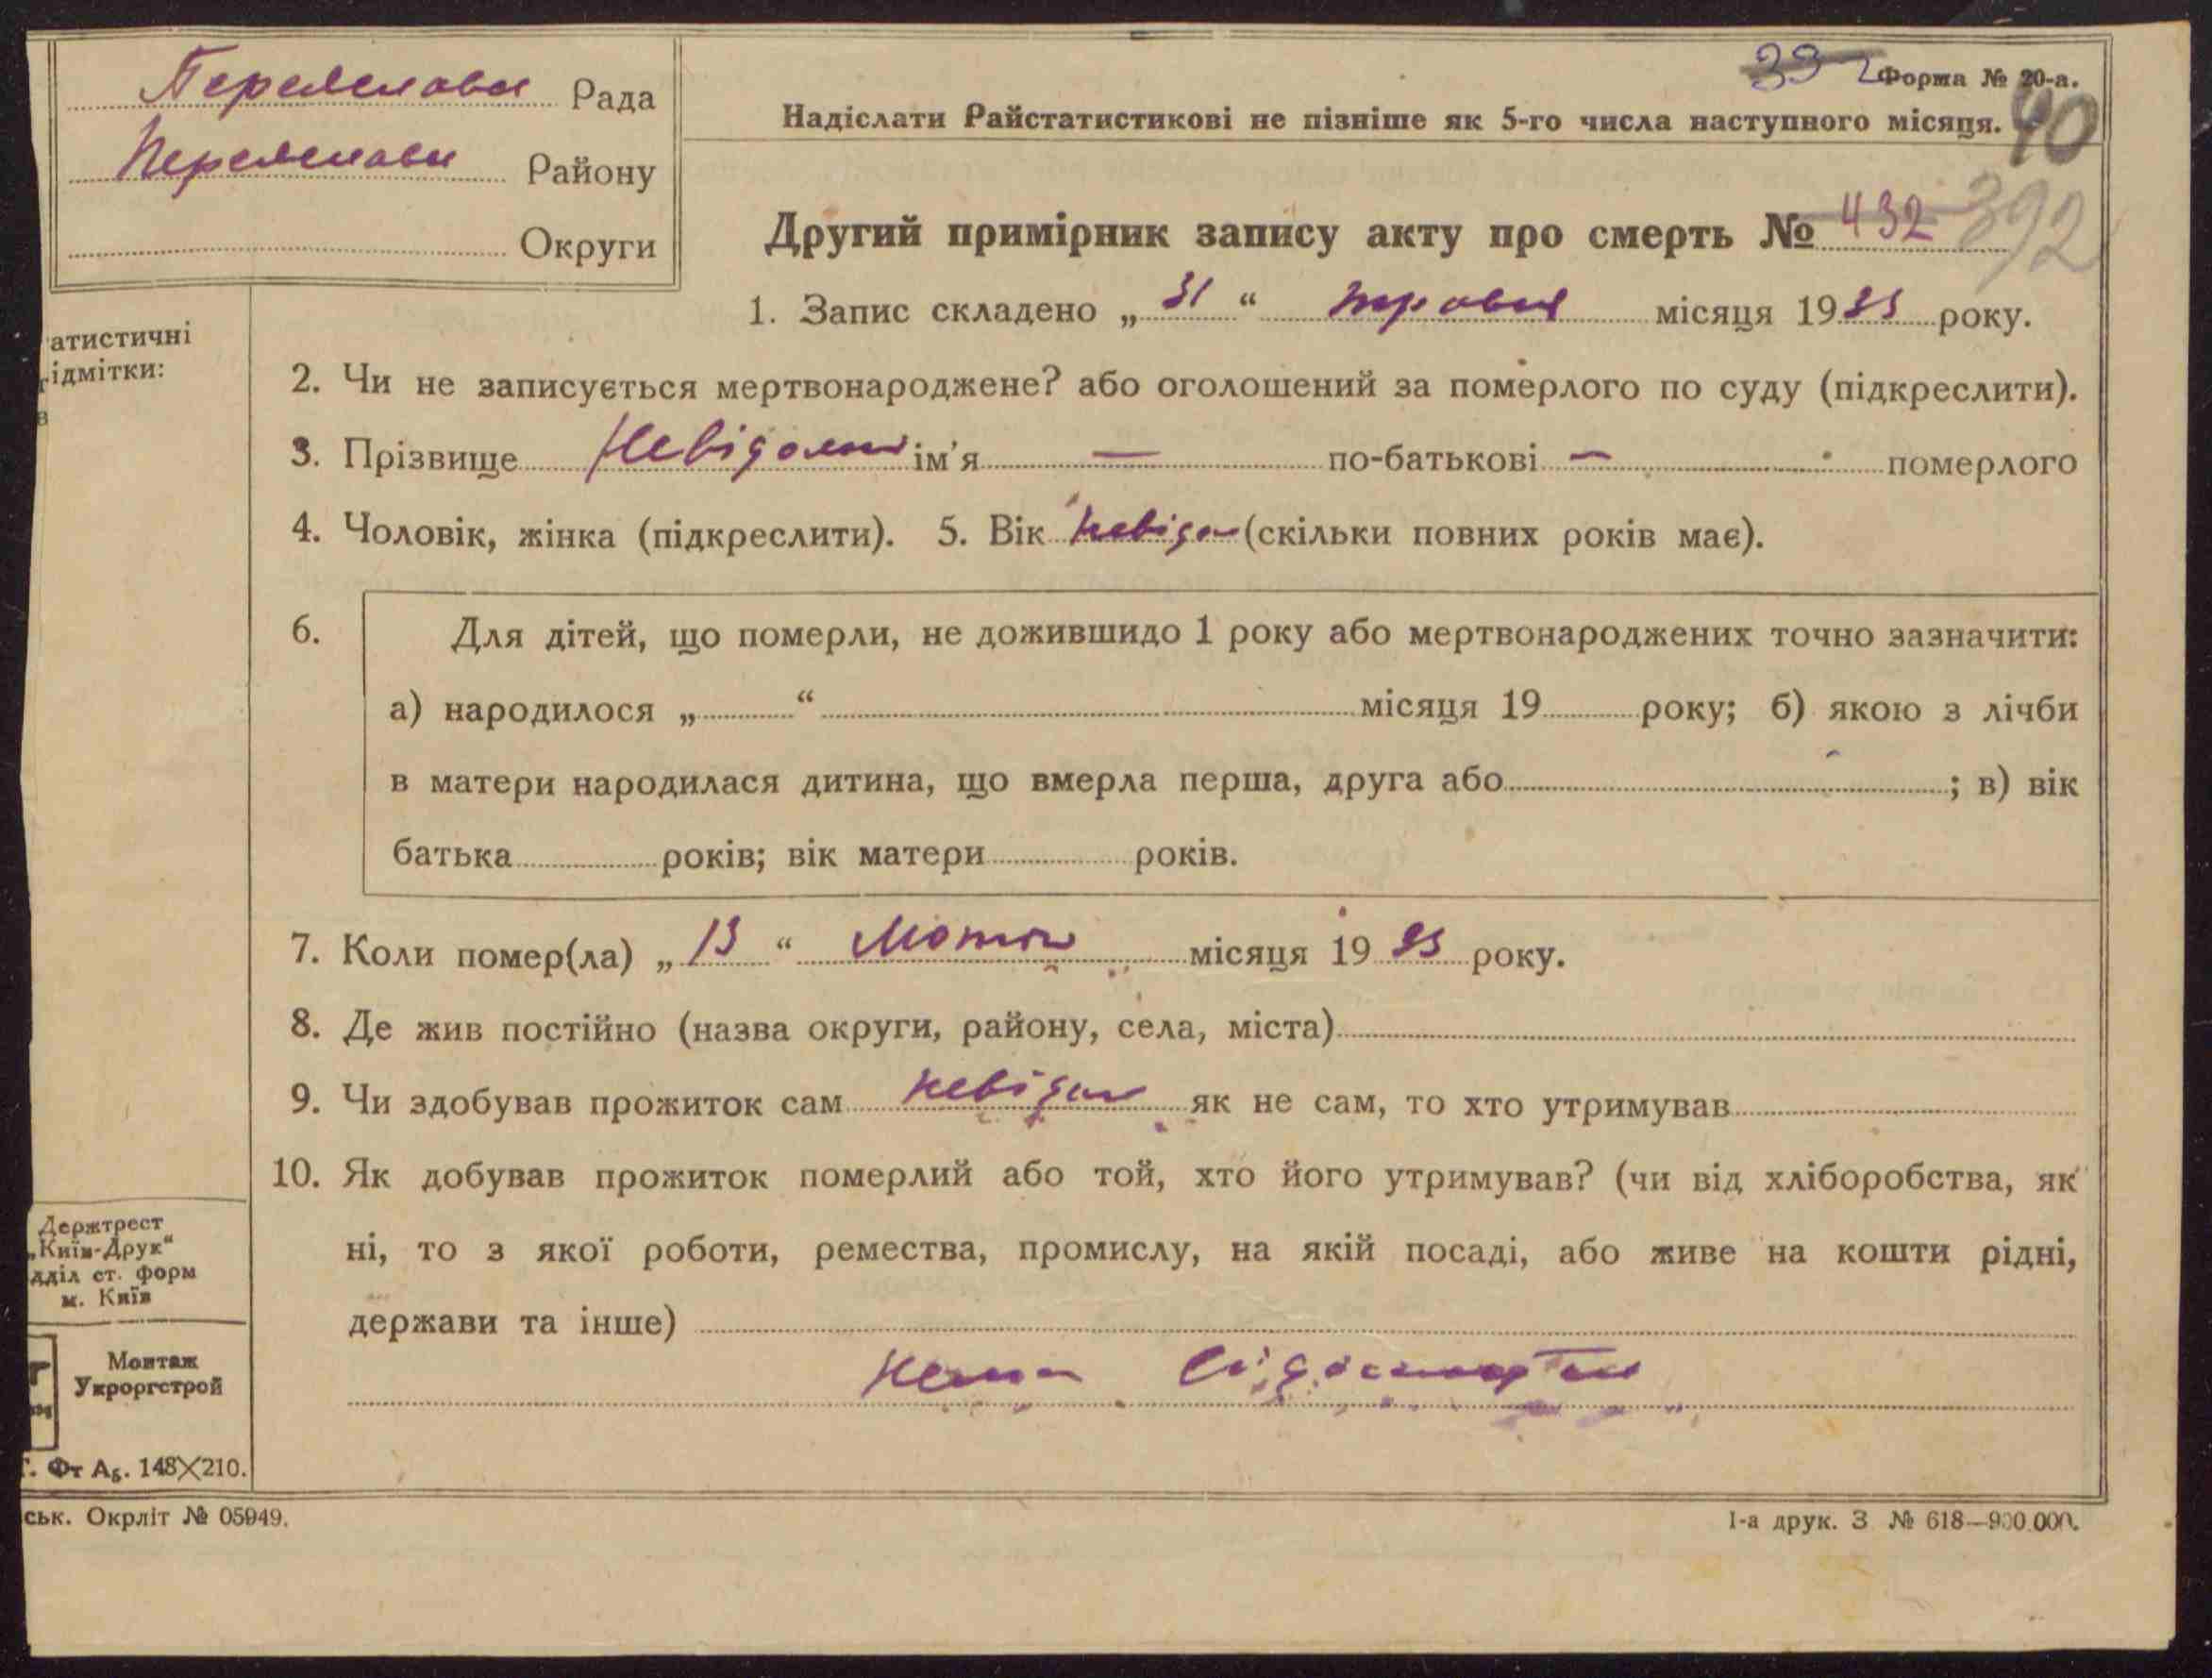 Переяславсь Рада
Переяславсь Району
Округи
39
Форма № 20-а.
Надіслати Райстатистикові не пізніше як 5-го числа наступного місяця.
40
Другий примірник запису акту про смерть № 432 392
1. Запис складено „ 31 “ травня місяця 1933 року.
атистичні
ідмітки:
в
2. Чи не записується мертвонароджене? або оголошений за померлого по суду (підкреслити).
3. Прізвище Невідомий ім'я — по-батькові — померлого
4. Чоловік, жінка (підкреслити). 5. Вік невідом (скільки повних років має).
6. Для дітей, що померли, не дожившидо 1 року або мертвонароджених точно зазначити:
а) народилося „ “ місяця 19 року; б) якою з лічби
в матери народилася дитина, що вмерла перша, друга або ; в) вік
батька років; вік матери років.
7. Коли помер(ла) „ 13 “ місяця 1933 року.
8. Де жив постійно (назва округи, району, села, міста)
9. Чи здобував прожиток сам невідом як не сам, то хто утримував
10. Як добував прожиток померлий або той, хто його утримував? (чи від хліборобства, як
ні, то з якої роботи, ремества, промислу, на якій посаді, або живе на кошти рідні,
держави та інше)
Нема
Держтрест
„Київ-Друк“
дділ ст. форм
м. Київ
Монтаж
Укроргстрой
Фт А₅. 148×210.
ськ. Окрліт № 05949.
1-а друк. З № 618—900.000.